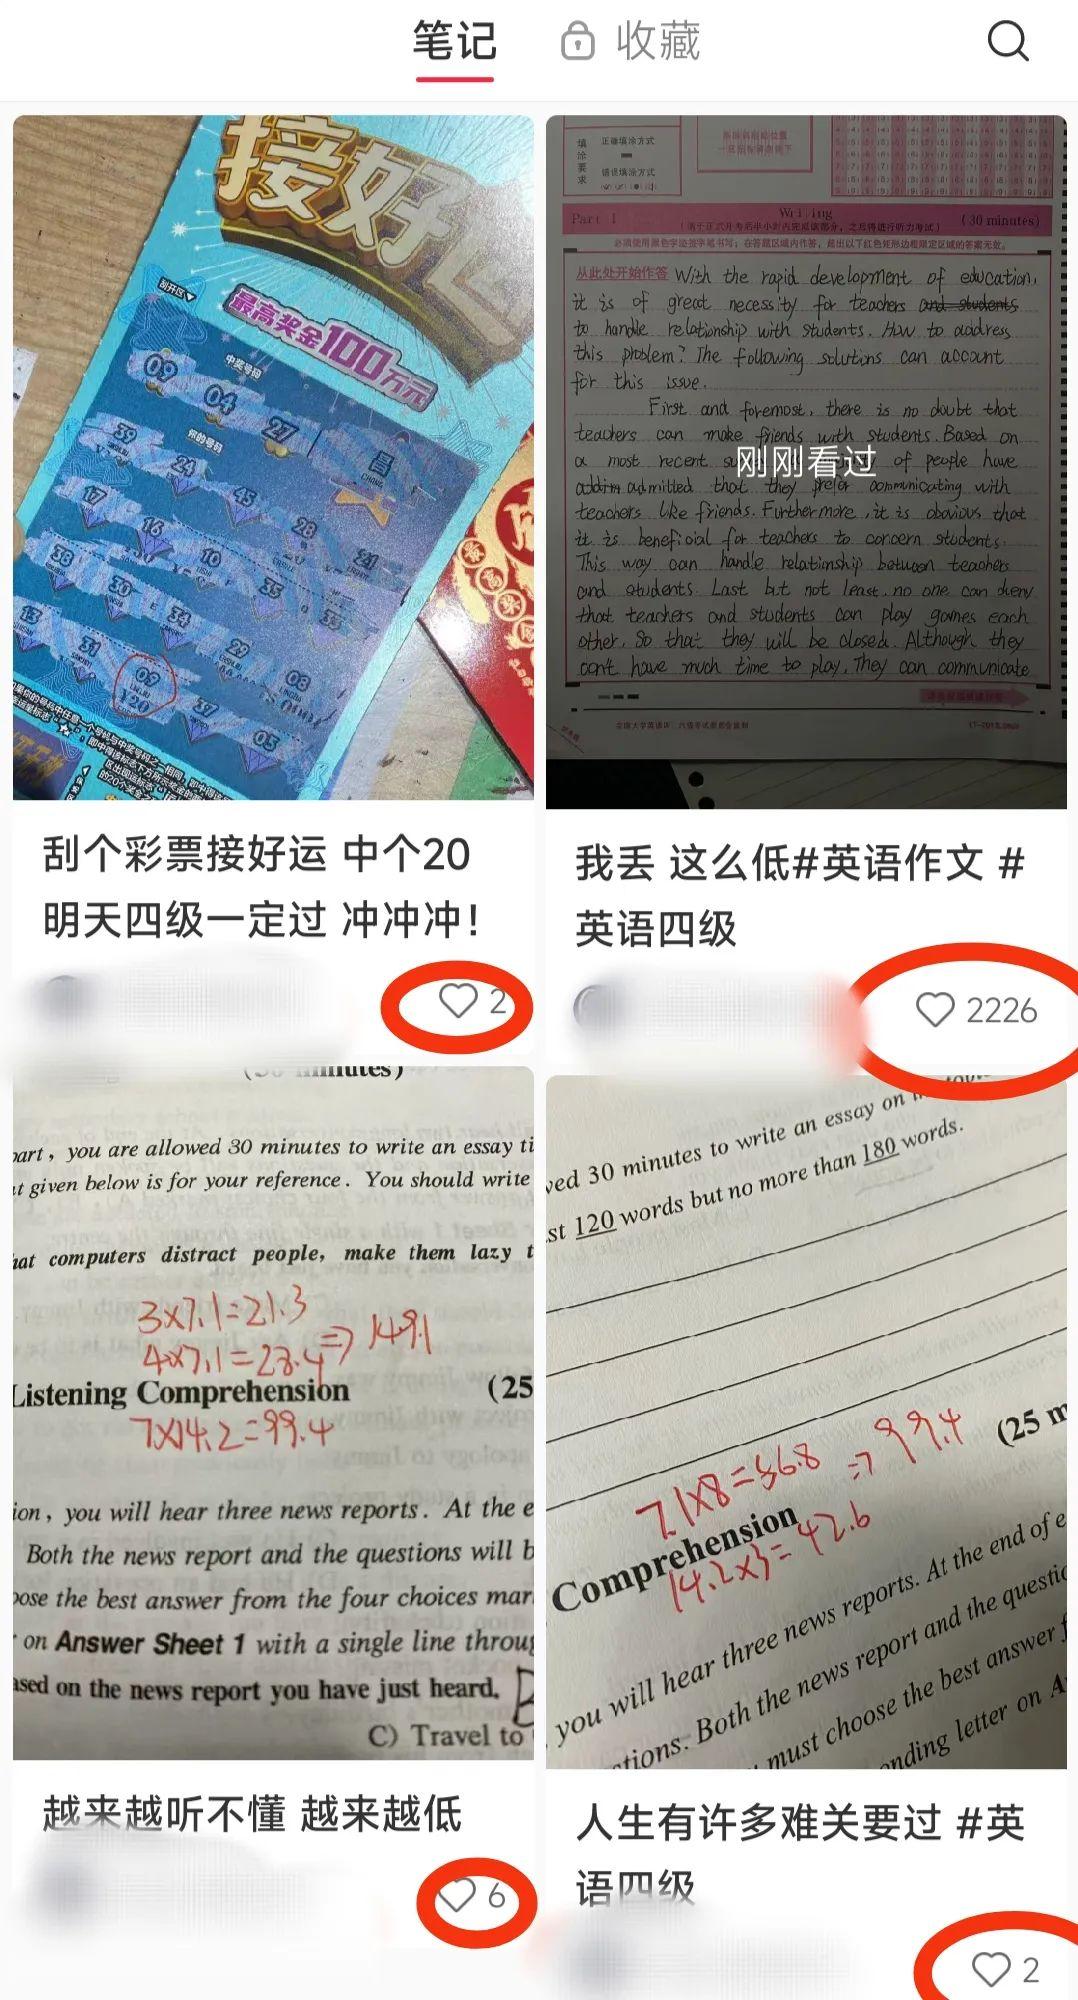 笔记
收藏
接好
最高奖金100万元
刮开区
中奖号码
09
04
27
你的号码
昌
39
24
45
28
21
17
16
10
35
33
38
30
34
29
08
13
31
09
¥20
37
03
刮个彩票接好运 中个20
明天四级一定过 冲冲冲!
2
填涂要求
正确填涂方式
错误填涂方式
Part I
Writing
(30 minutes)
从此处开始作答 With the rapid development of education,
it is of great necessity for teachers and students
to handle relationship with students. How to address
this problem? The following solutions can account
for this issue.
First and foremost, there is no doubt that
teachers can make friends with students. Based on
a most recent of people have
admitted that they prefer communicating with
teachers like friends. Furthermore, it is obvious that
it is beneficial for teachers to concern students.
This way can handle relationship between teachers
and students. Last but not least, no one can deny
that teachers and students can play games each
other. So that they will be closed. Although they
can't have much time to play, They can communicate
刚刚看过
我丢 这么低#英语作文 #
英语四级
2226
minutes)
part, you are allowed 30 minutes to write an essay ti
at given below is for your reference. You should write
hat computers distract people, make them lazy t
3×7.1=21.3
4×7.1=28.4 => 149.1
Listening Comprehension (25
7×14.2=99.4
ion, you will hear three news reports. At the e
Both the news report and the questions will b
oose the best answer from the four choices mar
on Answer Sheet 1 with a single line throug
ased on the news report you have just heard.
C) Travel to
越来越听不懂 越来越低
6
ved 30 minutes to write an essay on
st 120 words but no more than 180 words.
7.1×8=56.8 => 99.4
(25 m
Comprehension
14.2×3=42.6
you will hear three news reports. At the end of e
stions. Both the news report and the questio
must choose the best answer f
nding letter on A
人生有许多难关要过 #英
语四级
2